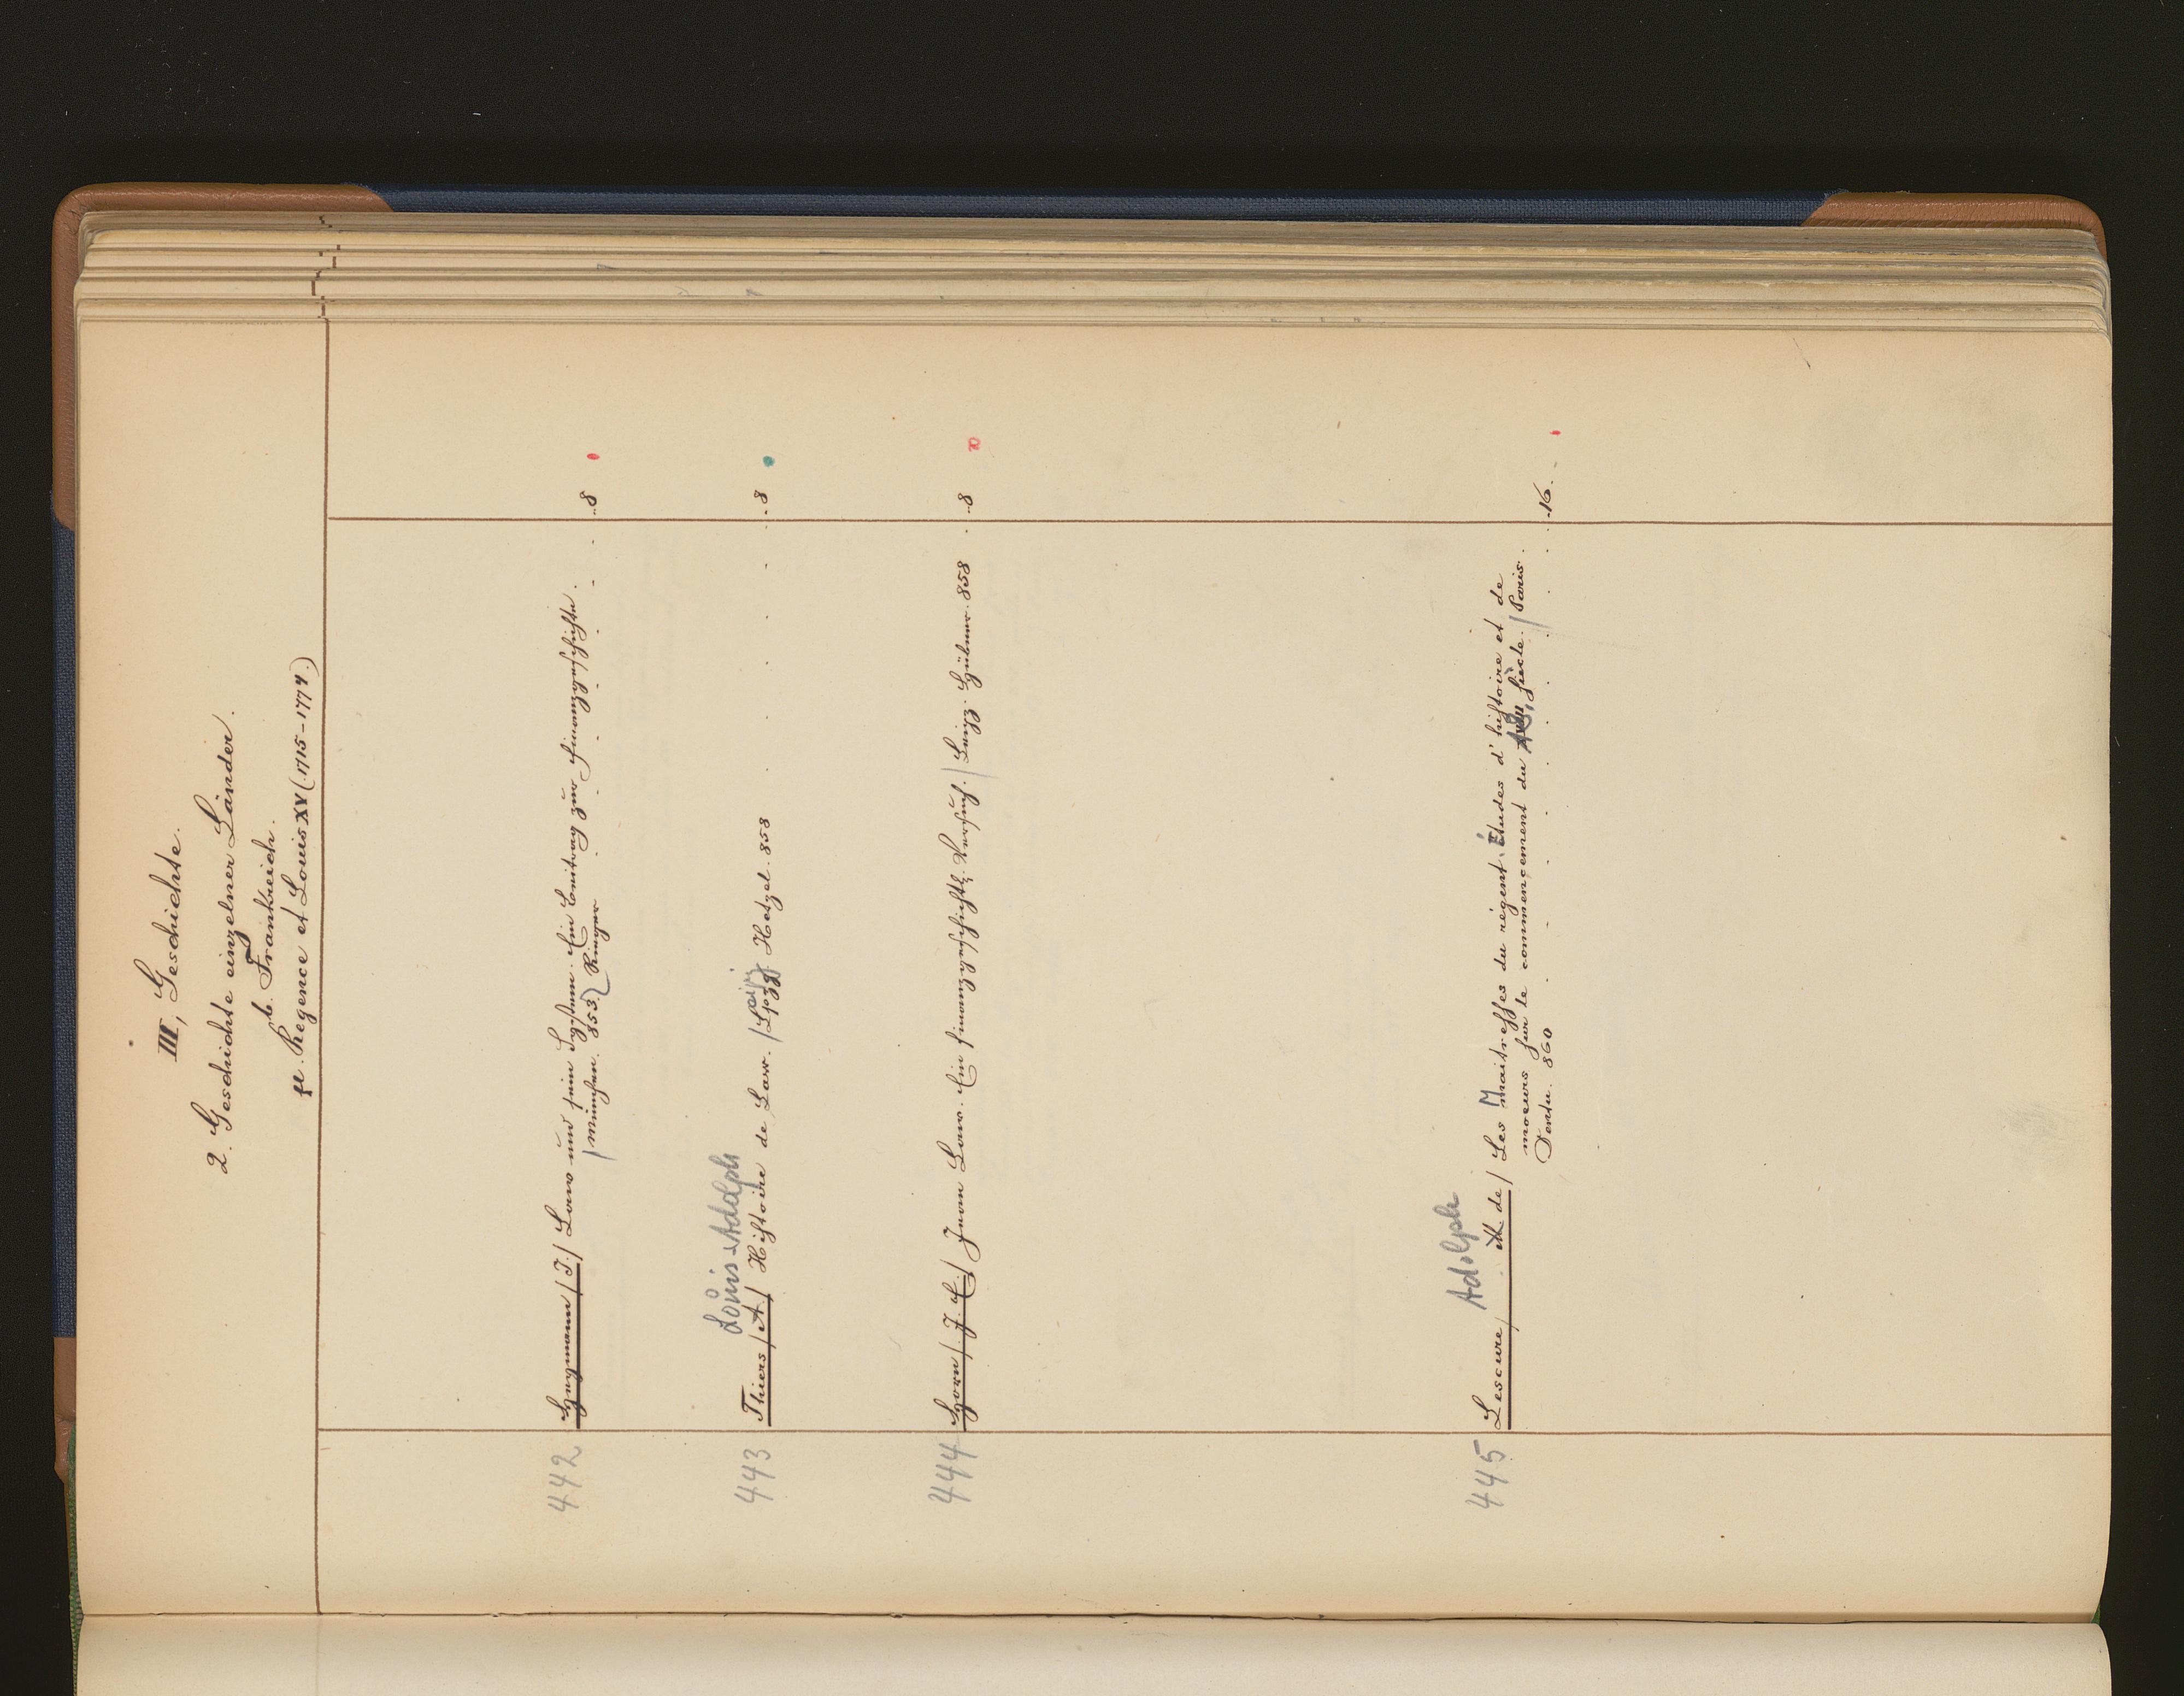 III, Geschichte.
2. Geschichte einzelner Länder.
b. Frankreich.
Regence et Louis XV (1715-1774.)
442 Heymann /J./ Law und sein System. Ein Beitrag zur Finanzgeschichte.
/München. 853. Rieger 8
Louis-Adolph
443 Thiers /A./ Histoire de Law. /Lpzg. Hetzel. 858 8
444 Horn /J. E./ Jean Law. Ein finanzgeschichtl. Versuch. / Leipz. Hübner. 858 8
Adolph
445 Lescure / M. de / Les Maitresses du régent. Études d'histoire et de
moeurs sur le commencement du 18. siècle. / Paris.
Dentu. 860 16.